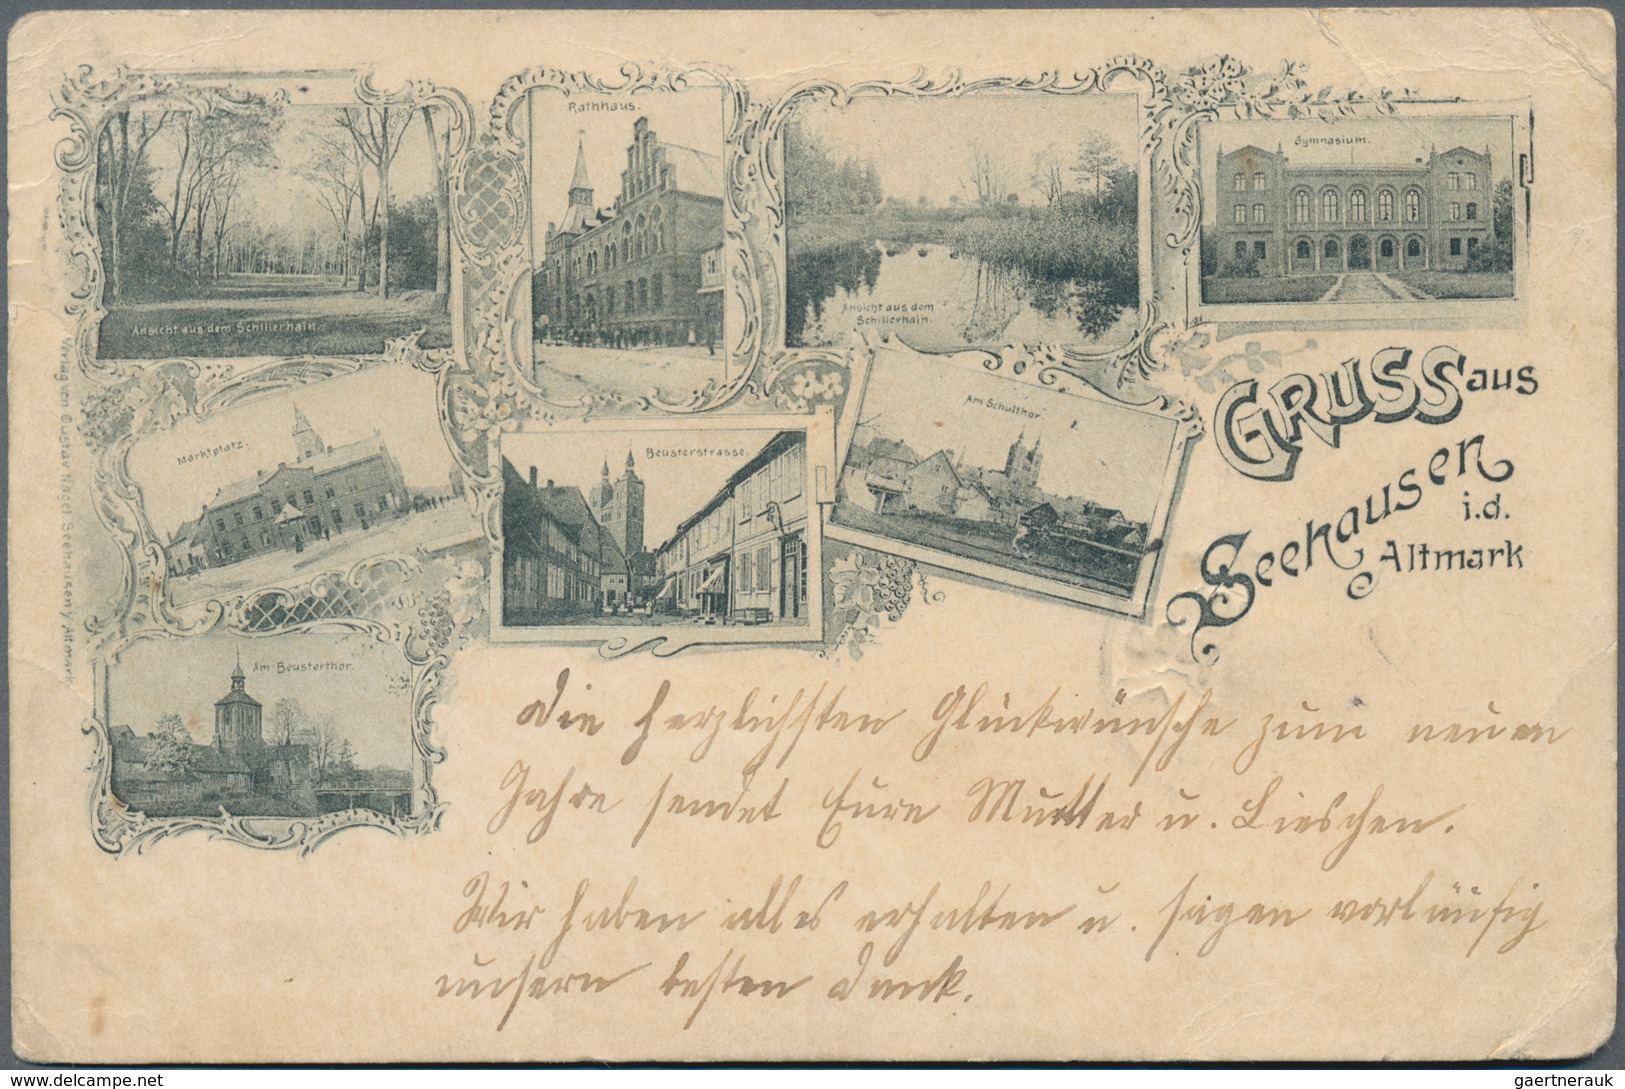 Rathhaus.
Gymnasium.
Ansicht aus dem Schillerhain.
Ansicht aus dem
Schillerhain.
GRUSS aus
Seehausen
i.d.
Altmark
Marktplatz.
Beusterstrasse.
Am Schulthor.
Am Beusterthor.
Verlag von Gustav Nagel Seehausen i/Altmark
Die herzlichsten Glückwünsche zum neuen
Jahre sendet Eure Mutter u. Lieschen.
Wir haben alles erhalten u. sagen vorläufig
unsern besten Dank.
delcampe.net
gaertnerauk